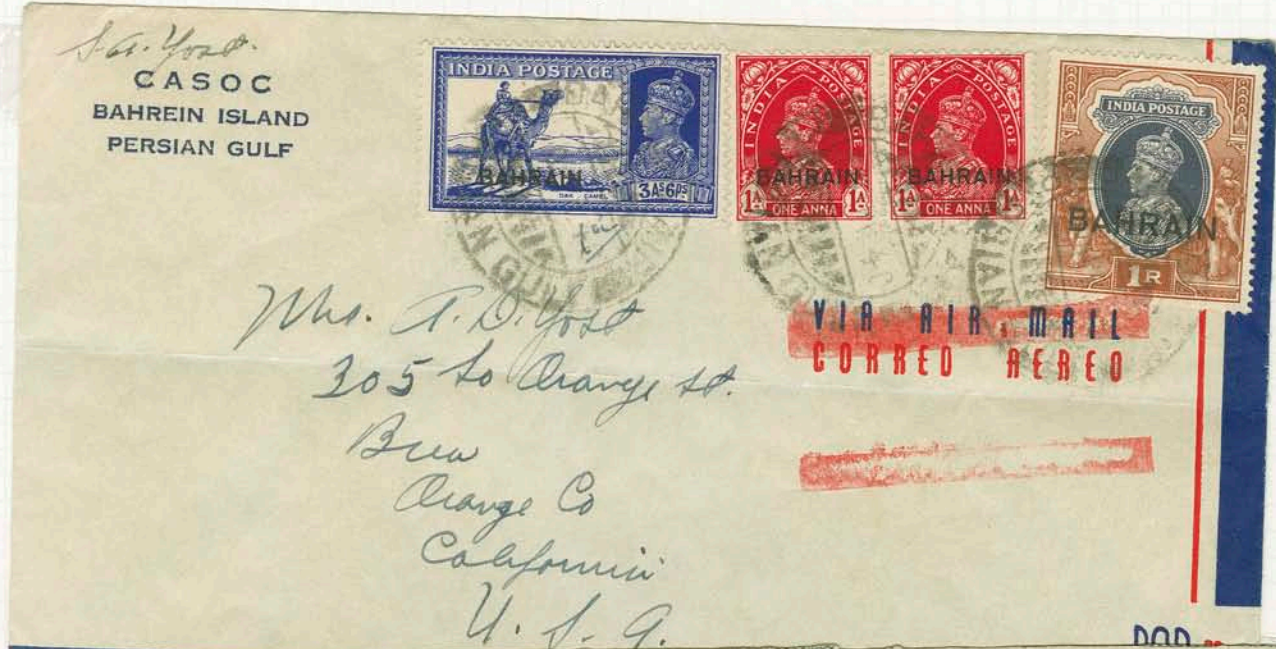 S. A. Yost.
CASOC
BAHREIN ISLAND
PERSIAN GULF
INDIA POSTAGE
BAHRAIN
DAK CAMEL
3As6Ps
INDIA POSTAGE
BAHRAIN
1A ONE ANNA 1A
INDIA POSTAGE
BAHRAIN
1A ONE ANNA 1A
INDIA POSTAGE
BAHRAIN
1R
VIA AIR MAIL
CORREO AEREO
Mrs. A. D. Yost
305 So Orange St.
Brea
Orange Co
California
U. S. A.